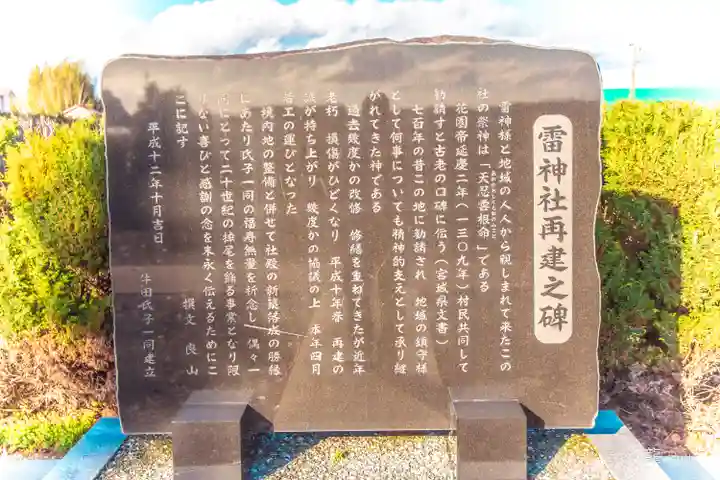 雷神社再建之碑
雷神様と地域の人人から親しまれて来たこの
社の祭神は「天忍雲根命」である
花園帝延慶二年(一三〇九年)村民共同して
勧請すと古老の口碑に伝う(宮城県文書)
七百年の昔この地に勧請され 地域の鎮守様
として何事についても精神的支えとして承り継
がれてきた神である
過去幾度かの改修 修繕を重ねてきたが近年
老朽 損傷がひどくなり 平成十年春 再建の
議が持ち上がり 幾度かの協議の上 本年四月
着工の運びとなった
境内地の整備と併せて社殿の新築落成の勝縁
にあたり氏子一同の福寿無量を祈念し 偶々一
同にとって二十世紀の掉尾を飾る事業となり限
りない喜びと感謝の念を末永く伝えるためにこ
こに記す
撰文 良山
平成十二年十月吉日
牛田氏子一同建立